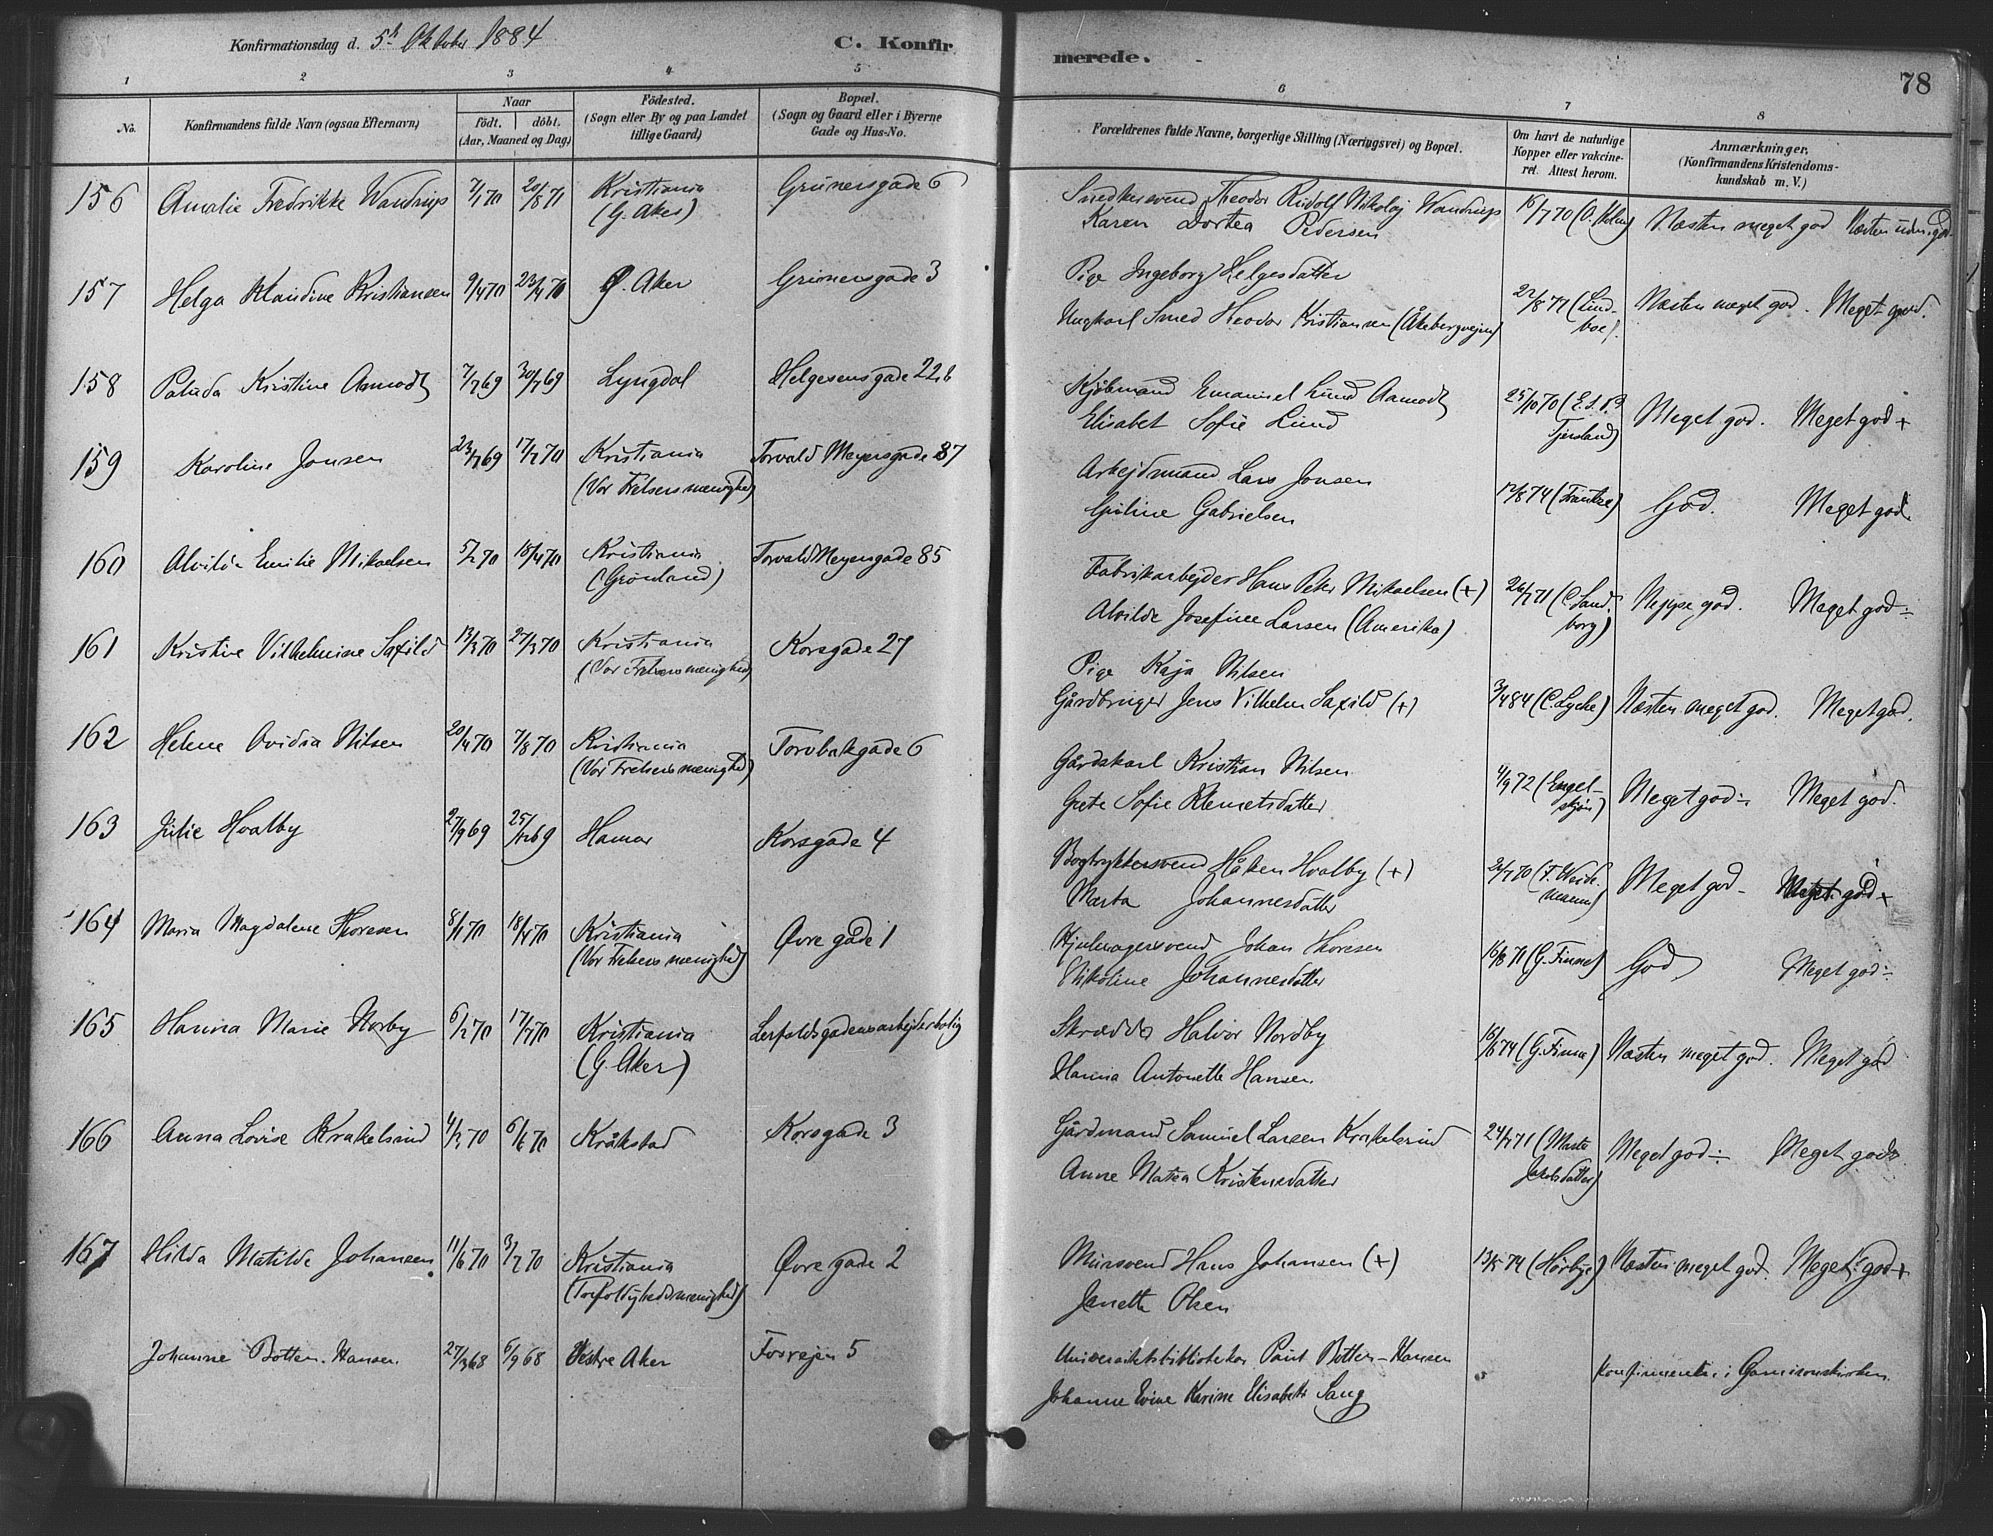 Konfirmationsdag d. 5te Oktober 1884
C. Konfirmerede.
78
1 2 3 4 5 6 7 8
No.
Konfirmandens fulde Navn (ogsaa Efternavn)
Naar
födt. döbt.
(Aar, Maaned og Dag)
Födested.
(Sogn eller By og paa Landet
tillige Gaard)
Bopæl.
(Sogn og Gaard eller i Byerne
Gade og Hus-No.
Forældrenes fulde Navne, borgerlige Stilling (Næringsvei) og Bopæl.
Om havt de naturlige
Kopper eller vakcine-
ret. Attest herom.
Anmærkninger,
(Konfirmandens Kristendoms-
kundskab m. V.)
156 Amalie Fredrikke Wandrup 7/1 70 20/8 71 Kristiania Grünersgade 6 Snedkersvend Theodor Rudolf Nikolaj Wandrup 15/7 70 (O. Holm) Næsten meget god Næsten udm. god
(G. Aker) Karen Dortea Pedersen
157 Helga Klaudine Kristiansen 9/4 70 23/4 70 G. Aker Grünersgade 3 Pige Ingeborg Helgesdatter 22/8 71 (Lind- Næsten meget god. Meget god.
Ungkarl Smed Theodor Kristiansen (Åkebergvejen) boe).
158 Palida Kristine Aamodt 7/7 69 30/7 69 Lyngdal Helgesensgade 22b Kjöbmand Emanuel Lund Aamodt 25/10 70 (E. S. Meget god. Meget god +
Elisabet Sofie Lund
159 Karoline Jonsen 23/7 69 17/7 70 Kristiania Torvald Meyersgade 87 Arbejdsmand Lars Jonsen 17/8 74 (Frantze) God. Meget god.
(Vor Frelsers menighed) Gjöline Gabrielsen
160 Alvilda Emilie Mikaelsen 5/2 70 18/4 70 Kristiania Torvald Meyersgade 85 Fabrikarbejder Hans Peter Mikaelsen (+) 26/7 71 (C. Sand- Neppe god. Meget god ÷
(Grønland) Alvilde Josefine Larsen (Amerika) borg)
161 Kristine Vilhelmine Saxild 13/3 70 27/3 70 Kristiania Korsgade 27 Pige Kaja Nilsen
(Vor Frelsers menighed) Gårdbruger Jens Vilhelm Saxild (+) 3/4 84 (C. Lycke) Næsten meget god. Meget god.
162 Helene Ovidia Nilsen 20/4 70 7/8 70 Kristiania Torvbakgade 6 Gårdskarl Kristian Nilsen 4/9 72 (Engel- Meget god ÷ Meget god.
(Vor Frelsers menighed) Grete Sofie Klemetsdatter
163 Julie Hvalby 27/9 69 25/12 69 Hamar Korsgade 4 Bogtrykkersvend Håken Hvalby (+) 26/7 70 (F. Weide- Meget god - Meget god +
Marta Johannesdatter mann)
164 Maria Magdalene Thoresen 8/1 70 18/4 70 Kristiania Øvre gade 1 Hjulmagersvend Johan Thoresen 16/8 71 (G. Finne) God Meget god ÷
(Vor Frelsers menighed) Nikoline Johannesdatter
165 Hanna Marie Norby 6/2 70 17/7 70 Kristiania Lerfoldsgadens arbejderbolig Skrædder Halvor Nordby 16/6 74 (G. Finne) Næsten meget god. Meget god
(G. Aker) Hanna Antonette Hansen.
166 Anna Lovise Krakelsrud 4/3 70 6/6 70 Kråkstad Korsgade 3 Gårdmand Samuel Larsen Krakelsrud 24/7 71 (Marte Meget god ÷ Meget god.
Anne Matea Kristensdatter Jakobsdatter)
167 Hilda Matilde Johansen. 11/6 70 3/7 70 Kristiania Øvre gade 2 Mursvend Hans Johansen (+) 13/5 74 (Hörbye) Næsten meget god. Meget god +
(Trefoldighedsmenighed) Janette Olsen
Johanne Botten-Hansen. 27/3 68 6/9 68 Vestre Aker Fosvejen 5 Universitetsbibliotekar Paul Botten-Hansen Konfirmeret i Garnisonskirken.
Johanne Evine Karine Elisabeth Sang